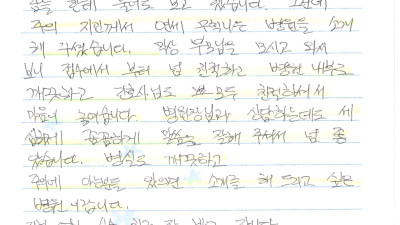 주위 지인께서 연세 우척나은 병원을 소개
해 주셨습니다. 막상 부모님을 모시고 와서
보니 접수에서 부터 넘 친절하고 병원 내부도
깨끗하고 간호사님도 모두 친절하셔서
마음이 놓여습니다. 병원장님과 상담하는데도 세
심하게 꼼꼼하게 말씀을 잘해 주셔서 넘 좋
았습니다. 병실도 깨끗하고
주위에 아픈분들 있으면 소개를 해 드리고 싶은
병원 이랍니다.